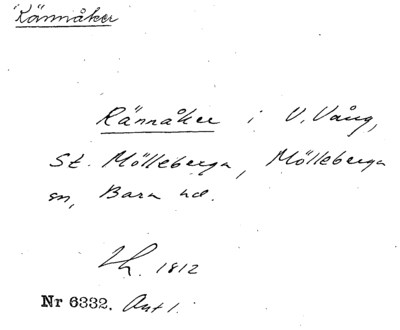 Rännåker
Rännåker i V. Vång,
St. Mölleberga, Mölleberga
sn, Bara hd.
Lh. 1812
Nr 6332. Ant 1.